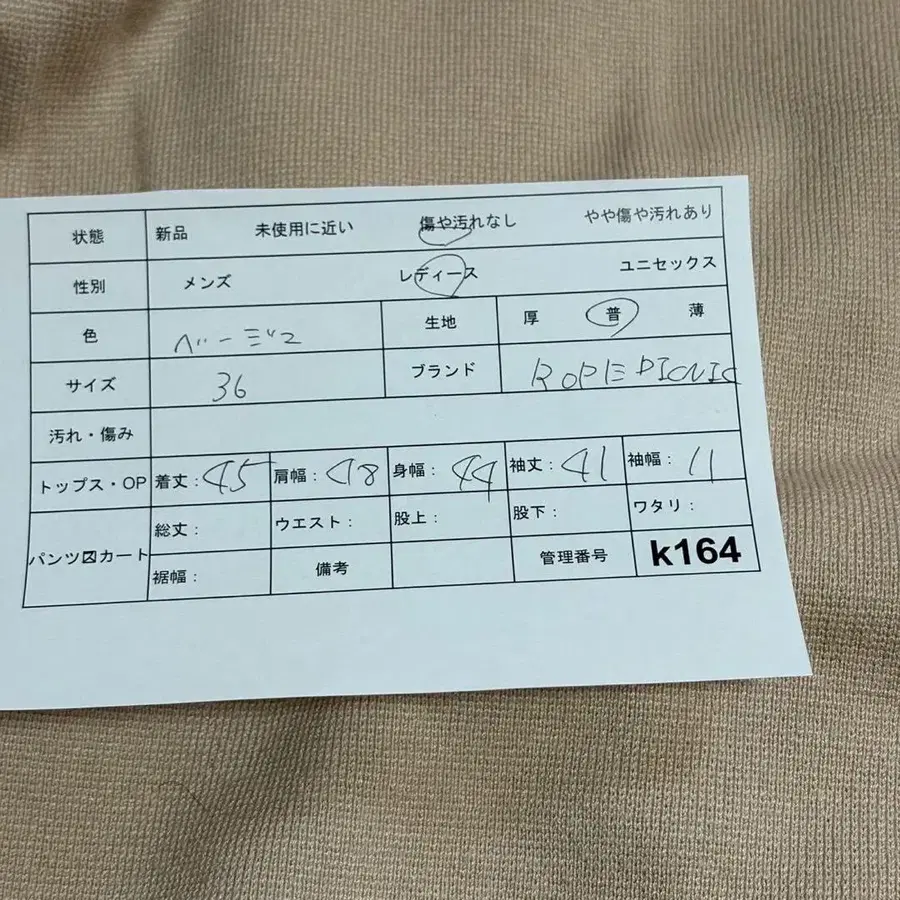 状態 新品 未使用に近い 傷や汚れなし やや傷や汚れあり
性別 メンズ レディース ユニセックス
色 ベージュ 生地 厚 普 薄
サイズ 36 ブランド ROPE PICNIC
汚れ・傷み
トップス・OP 着丈：45 肩幅：48 身幅：44 袖丈：41 袖幅：11
パンツ図カート 総丈： ウエスト： 股上： 股下： ワタリ：
裾幅： 備考 管理番号 k164